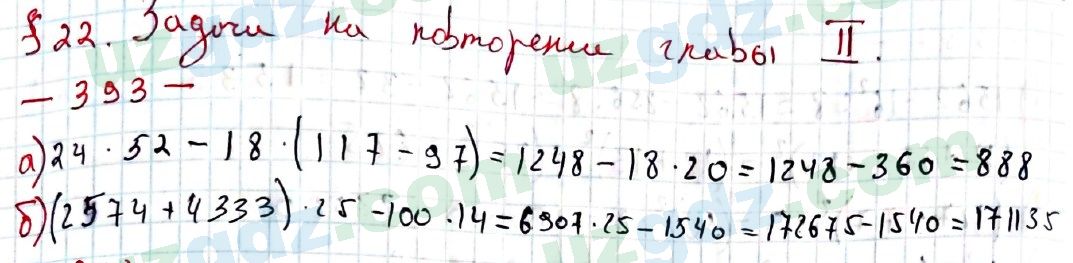 § 22. Задачи на повторение главы II.
— 393 —
а) 24 · 52 - 18 · (117 - 97) = 1248 - 18 · 20 = 1248 - 360 = 888
б) (2574 + 4333) · 25 - 100 · 14 = 6907 · 25 - 1540 = 172675 - 1540 = 171135